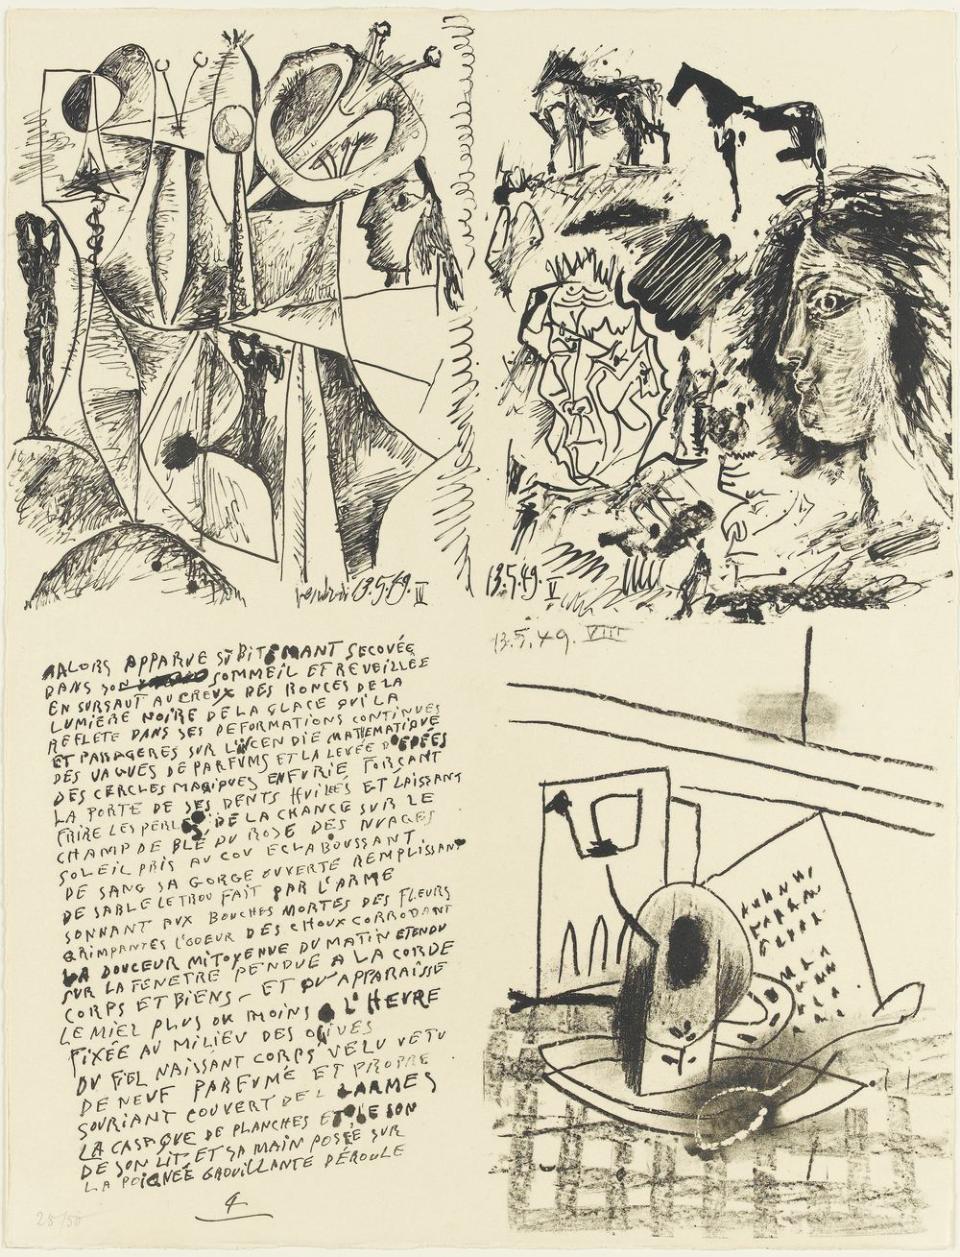 vendredi 13.5.49. IV
13.5.49. V
ALORS APPARUE SUBITEMANT SECOUÉE
DANS SON SOMMEIL ET REVEILLÉE
EN SURSAUT AU CREUX DES RONCES DE LA
LUMIÈRE NOIRE DE LA GLACE QUI LA
REFLETE DANS SES DEFORMATIONS CONTINUES
ET PASSAGERES SUR L'INCENDIE MATHEMATIQUE
DES VAGUES DE PARFUMS ET LA LEVÉE D'EPÉES
DES CERCLES MAGIQUES EN FURIE FORÇANT
LA PORTE DE SES DENTS HUILÉES ET LAISSANT
FRIRE LES PERLES DE LA CHANCE SUR LE
CHAMP DE BLÉ DU ROSE DES NUAGES
SOLEIL PRIS AU COU ECLABOUSSANT
DE SANG SA GORGE OUVERTE REMPLISSANT
DE SABLE LE TROU FAIT PAR L'ARME
SONNANT AUX BOUCHES MORTES DES FLEURS
GRIMPANTES L'ODEUR DES CHOUX CORRODANT
LA DOUCEUR MITOYENNE DU MATIN ETENDU
SUR LA FENETRE PENDUE A LA CORDE
CORPS ET BIENS - ET QU'APPARAISSE
LE MIEL PLUS OU MOINS A L'HEURE
FIXÉE AU MILIEU DES OLIVES
DU FIEL NAISSANT CORPS VELU VETU
DE NEUF PARFUMÉ ET PROPRE
SOURIANT COUVERT DE LARMES
LA CASAQUE DE PLANCHES ET DE SON
DE SON LIT ET SA MAIN POSÉE SUR
LA POIGNÉE GROUILLANTE DÉROULE
4
28/50
13.5.49. VIII